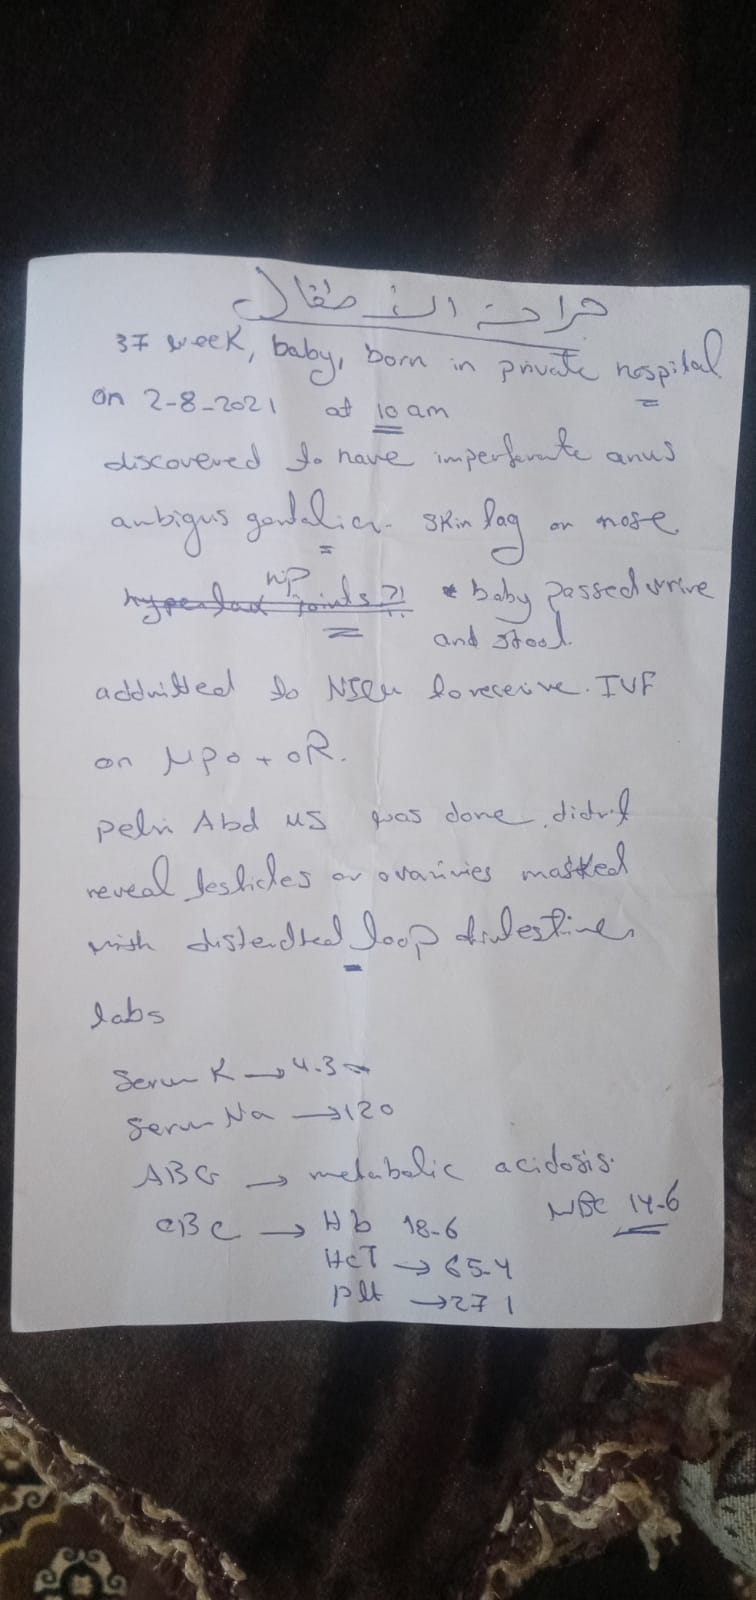 جراحة الأطفال
37 week, baby, born in private hospital
on 2-8-2021 at 10 am
discovered to have imperforate anus
ambigus genitalia. skin tag on nose
hyperlax joints ?! * baby passed urine
and stool.
addmitted to NICU to receive. IVF
on NPO + OR.
pelvi Abd US was done, didn't
reveal testicles or ovarivies masked
with distendted loop
labs
Serum K → 4.3
Serum Na → 120
ABG → metabolic acidosis.
CBC → Hb 18-6 WBC 14-6
HCT → 65-4
plt → 271